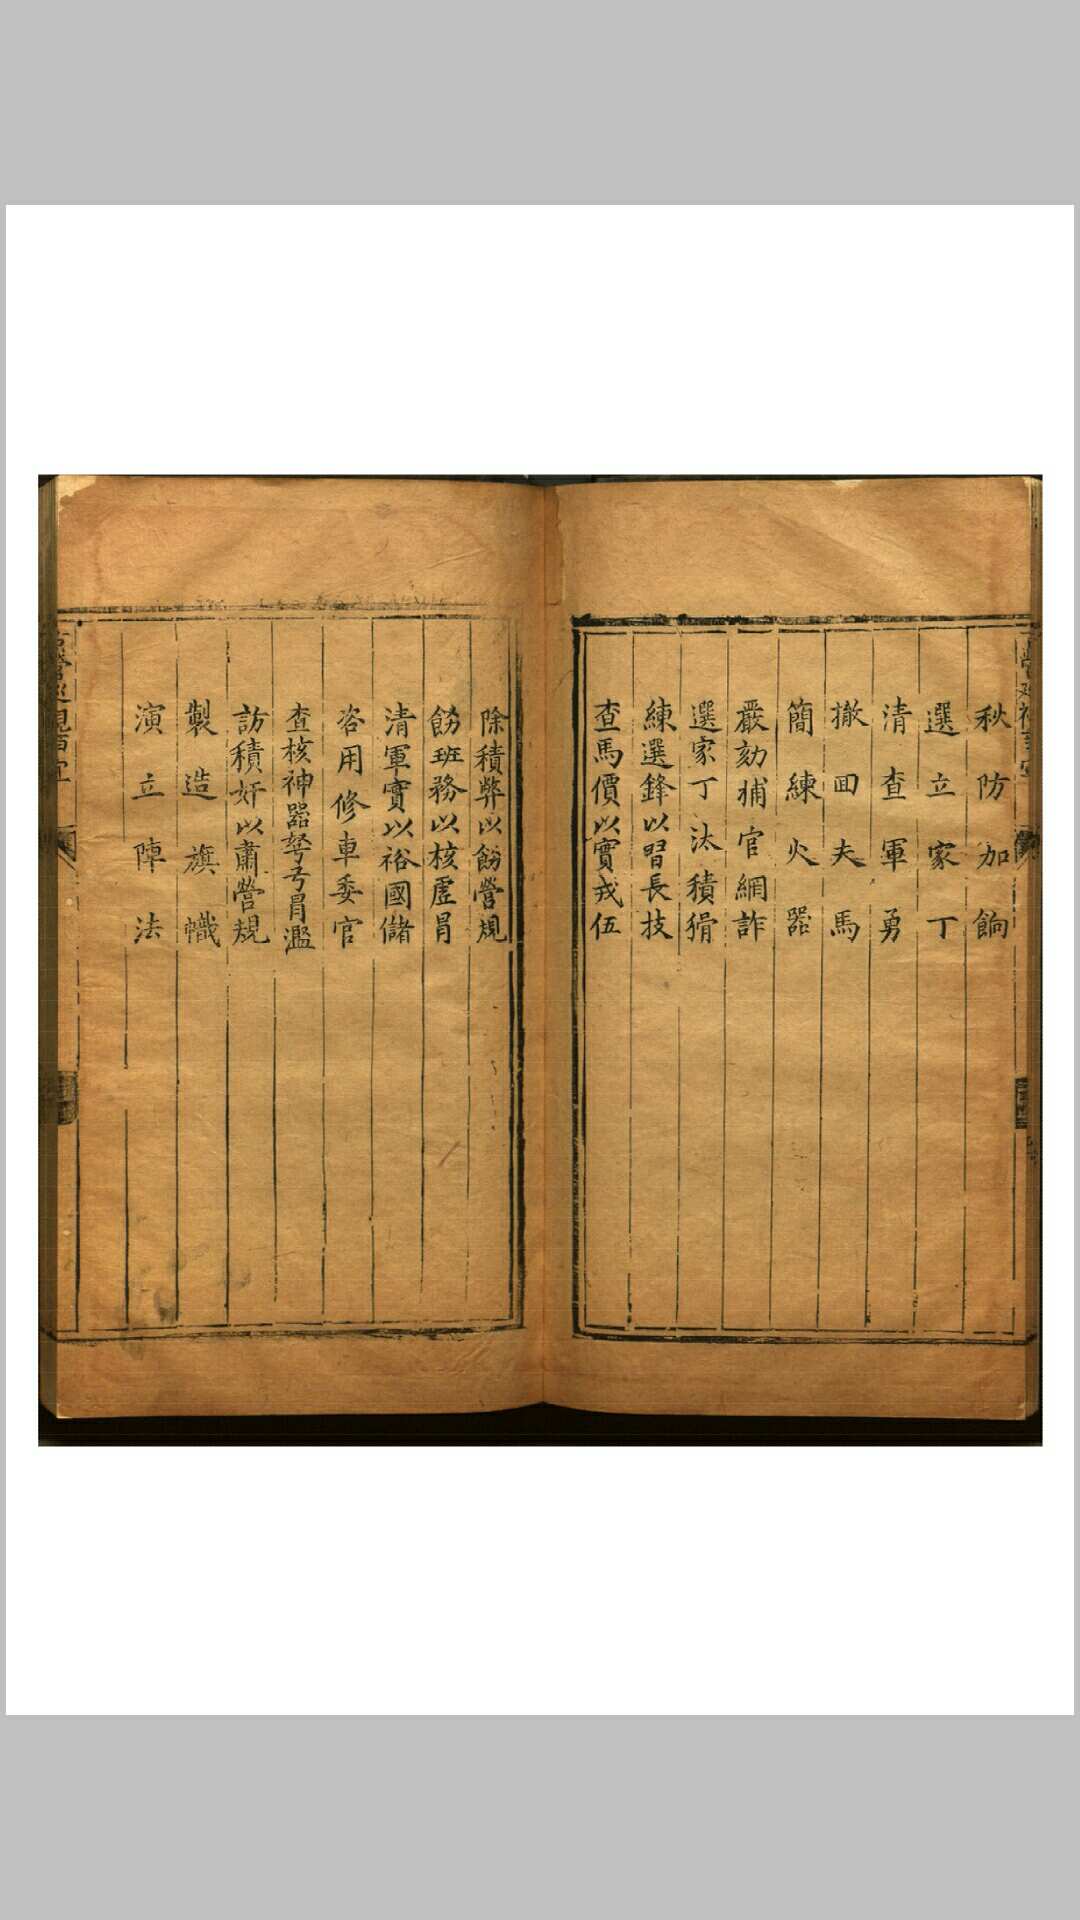 秋防加餉
選立家丁
清查軍勇
撤回夫馬
簡練火器
嚴劾捕官網詐
選家丁汰積猾
練選鋒以習長技
查馬價以實戎伍
除積弊以飭營規
飭班務以核虛冐
清軍實以裕國儲
咨用修車委官
查核神器弩弓冐濫
訪積奸以肅營規
製造旗幟
演立陣法